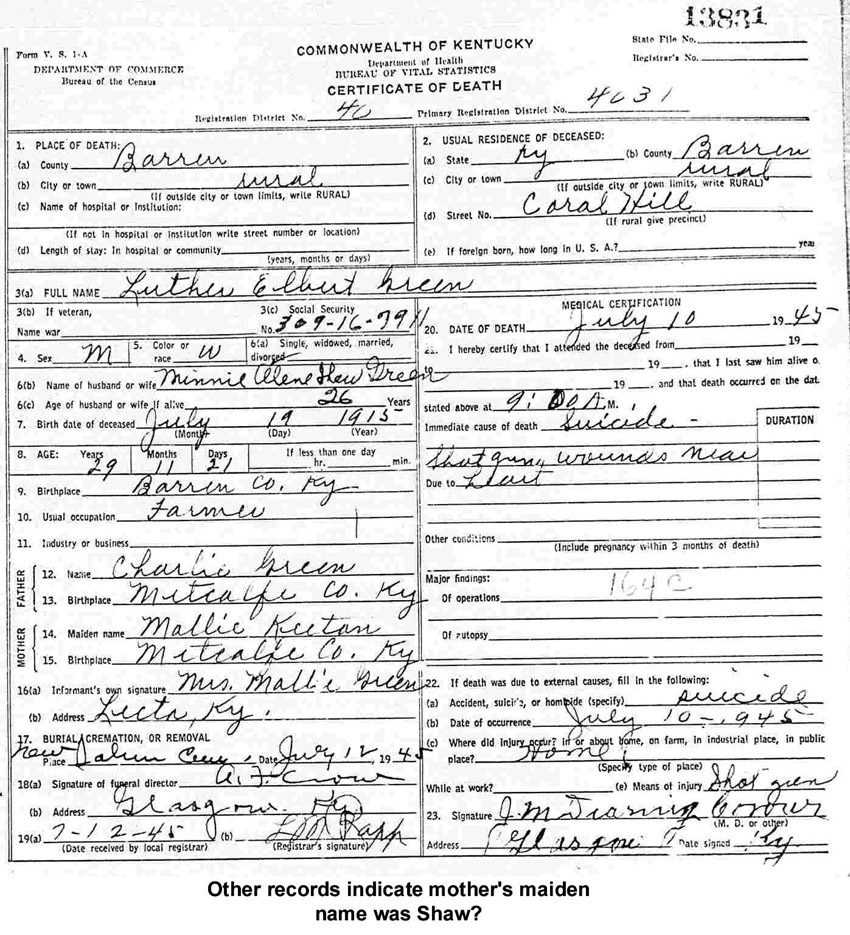 13831
COMMONWEALTH OF KENTUCKY
Department of Health
BUREAU OF VITAL STATISTICS
CERTIFICATE OF DEATH
Form V. S. 1-A
DEPARTMENT OF COMMERCE
Bureau of the Census
State File No.
Registrar's No.
Registration District No. 40 Primary Registration District No. 4031
1. PLACE OF DEATH:
(a) County Barren
(b) City or town rural
(If outside city or town limits, write RURAL)
(c) Name of hospital or Institution:
(If not in hospital or Institution write street number or location)
(d) Length of stay: In hospital or community
(years, months or days)
2. USUAL RESIDENCE OF DECEASED:
(a) State Ky (b) County Barren
(c) City or town rural
(If outside city or town limits, write RURAL)
(d) Street No. Coral Hill
(If rural give precinct)
(e) If foreign born, how long in U. S. A.? years
3(a) FULL NAME Luther Elbert Green
3(b) If veteran,
Name war
3(c) Social Security
No. 309-16-7911
4. Sex M 5. Color or race W 6(a) Single, widowed, married,
divorced
6(b) Name of husband or wife Minnie Olene Shaw Green
6(c) Age of husband or wife if alive 26 Years
7. Birth date of deceased July 19 1915
(Month) (Day) (Year)
8. AGE: Years Months Days If less than one day
29 11 21 hr. min.
9. Birthplace Barren Co. Ky
10. Usual occupation Farmer
11. Industry or business
FATHER
12. Name Charlie Green
13. Birthplace Metcalfe Co. Ky
MOTHER
14. Maiden name Mallie Keetan
15. Birthplace Metcalfe Co. Ky
16(a) Informant's own signature Mrs. Mallie Green
(b) Address Lecta, Ky.
17. BURIAL, CREMATION, OR REMOVAL
New Salem Cem. Place Date July 12, 1945
18(a) Signature of funeral director A. F. Crow
(b) Address Glasgow Ky
19(a) 7-12-45 (b)
(Date received by local registrar) (Registrar's signature)
MEDICAL CERTIFICATION
20. DATE OF DEATH July 10 1945
21. I hereby certify that I attended the deceased from 19
19 , that I last saw him alive o
19 , and that death occurred on the dat
stated above at 9:00 A.M.
Immediate cause of death Suicide -
DURATION
Shot gun wounds near
Due to heart
Other conditions
(Include pregnancy within 3 months of death)
Major findings: 164 C
Of operations
Of autopsy
22. If death was due to external causes, fill in the following:
(a) Accident, suicide, or homicide (specify) suicide
(b) Date of occurrence July 10-1945
(c) Where did injury occur? In or about home, on farm, in industrial place, in public
place? Home
(Specify type of place)
While at work? (e) Means of injury Shot gun
23. Signature J. M. Coroner
(M. D. or other)
Address Glasgow Date signed Ky
Other records indicate mother's maiden
name was Shaw?